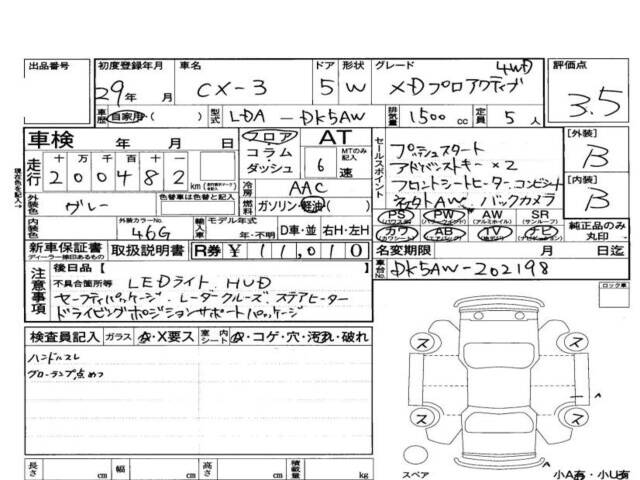 出品番号 初度登録年月 車名 ドア 形状 グレード 4WD 評価点
29年 月 CX-3 5 W XDプロアクティブ 3.5
車歴 自家用( ) 型式 LDA-DK5AW 排気量 1500cc 定員 5人
車検 年 月 日 フロア AT セールスポイント プッシュスタート [外装]
走行 十 万 千 百 十 一 コラム MTのみ記入 アドバンストキー×2 B
200482 km ダッシュ 6速 フロントシートヒーター コンビシート [内装]
現在色を記入 外装色 グレー 色替車は色替と記入 冷房 AAC 純正AW バックカメラ B
燃料 ガソリン・軽油( ) PS PW AW SR
(パワステ) (パワーウィンドウ) (アルミホイル) (サンルーフ)
内装色 外装カラーNo. 46G 輸入車 モデル年式 年・不明 D車・並 右H・左H カワ AB TV ナビ 純正品のみ丸印
新車保証書 ディーラー捺印あるもの 取扱説明書 R券 ¥11,010 名変期限 月 日迄
注意事項 後日品【 】 車台No. DK5AW-202198
不具合箇所等 LEDライト HUD ロック車
セーフティパッケージ レーダークルーズ ステアヒーター
ドライビングポジションサポートパッケージ
検査員記入 ガラス A・X要ス 室内シート A・コゲ・穴・汚れ・破れ
ハンドルスレ ス ス
グローランプ点めつ
ス ス
スペア
長さ cm 幅 cm 高さ cm 積載量 kg 小A有・小U有